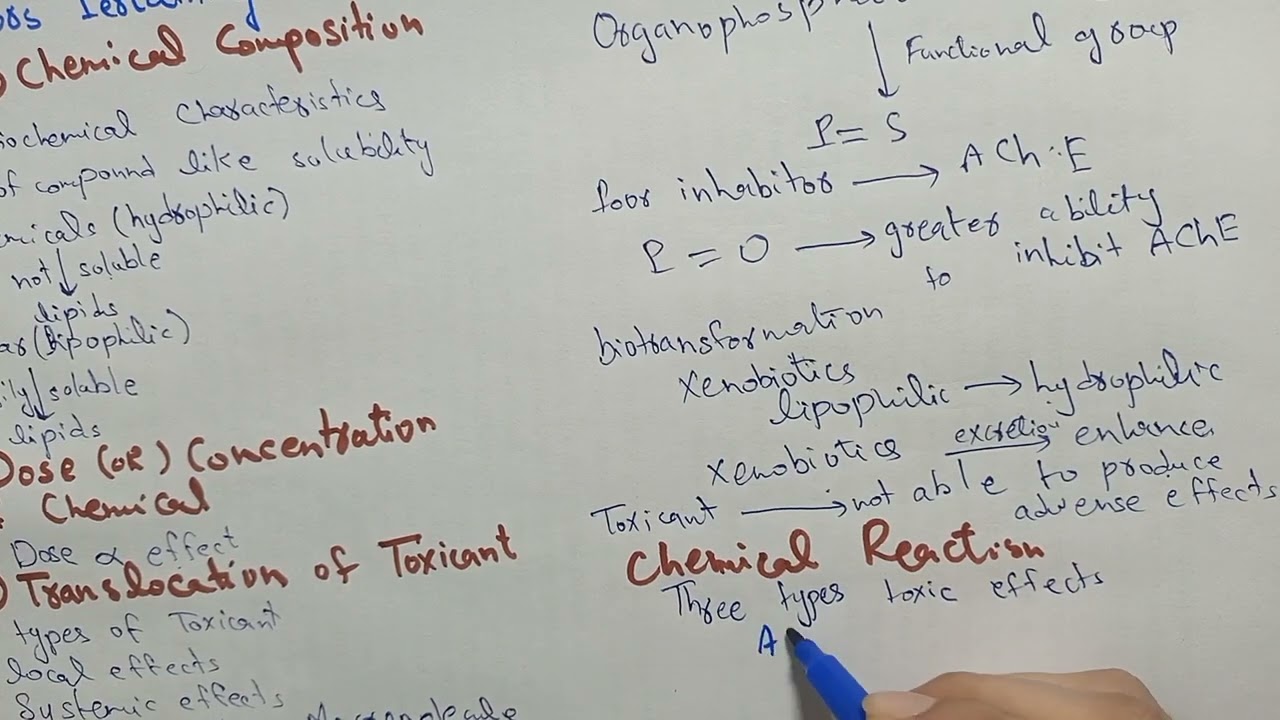 Chemical Composition
Characteristics
of compound like solubility
(hydrophilic)
not ↓ soluble
lipids
(lipophilic)
↓ soluble
lipids
Dose (OR) Concentration
Chemical
Dose ∝ effect
Translocation of Toxicant
types of Toxicant
local effects
Systemic effects
Functional group
P = S
Poor inhibitor → ACh.E
P = O → greater ability
to inhibit AChE
biotransformation
xenobiotics
lipophilic → hydrophilic
xenobiotics → enhance
Toxicant → not able to produce
adverse effects
Chemical Reaction
Three types toxic effects
A